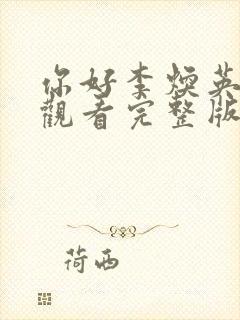 你好李煥英
觀看完整版
荷西